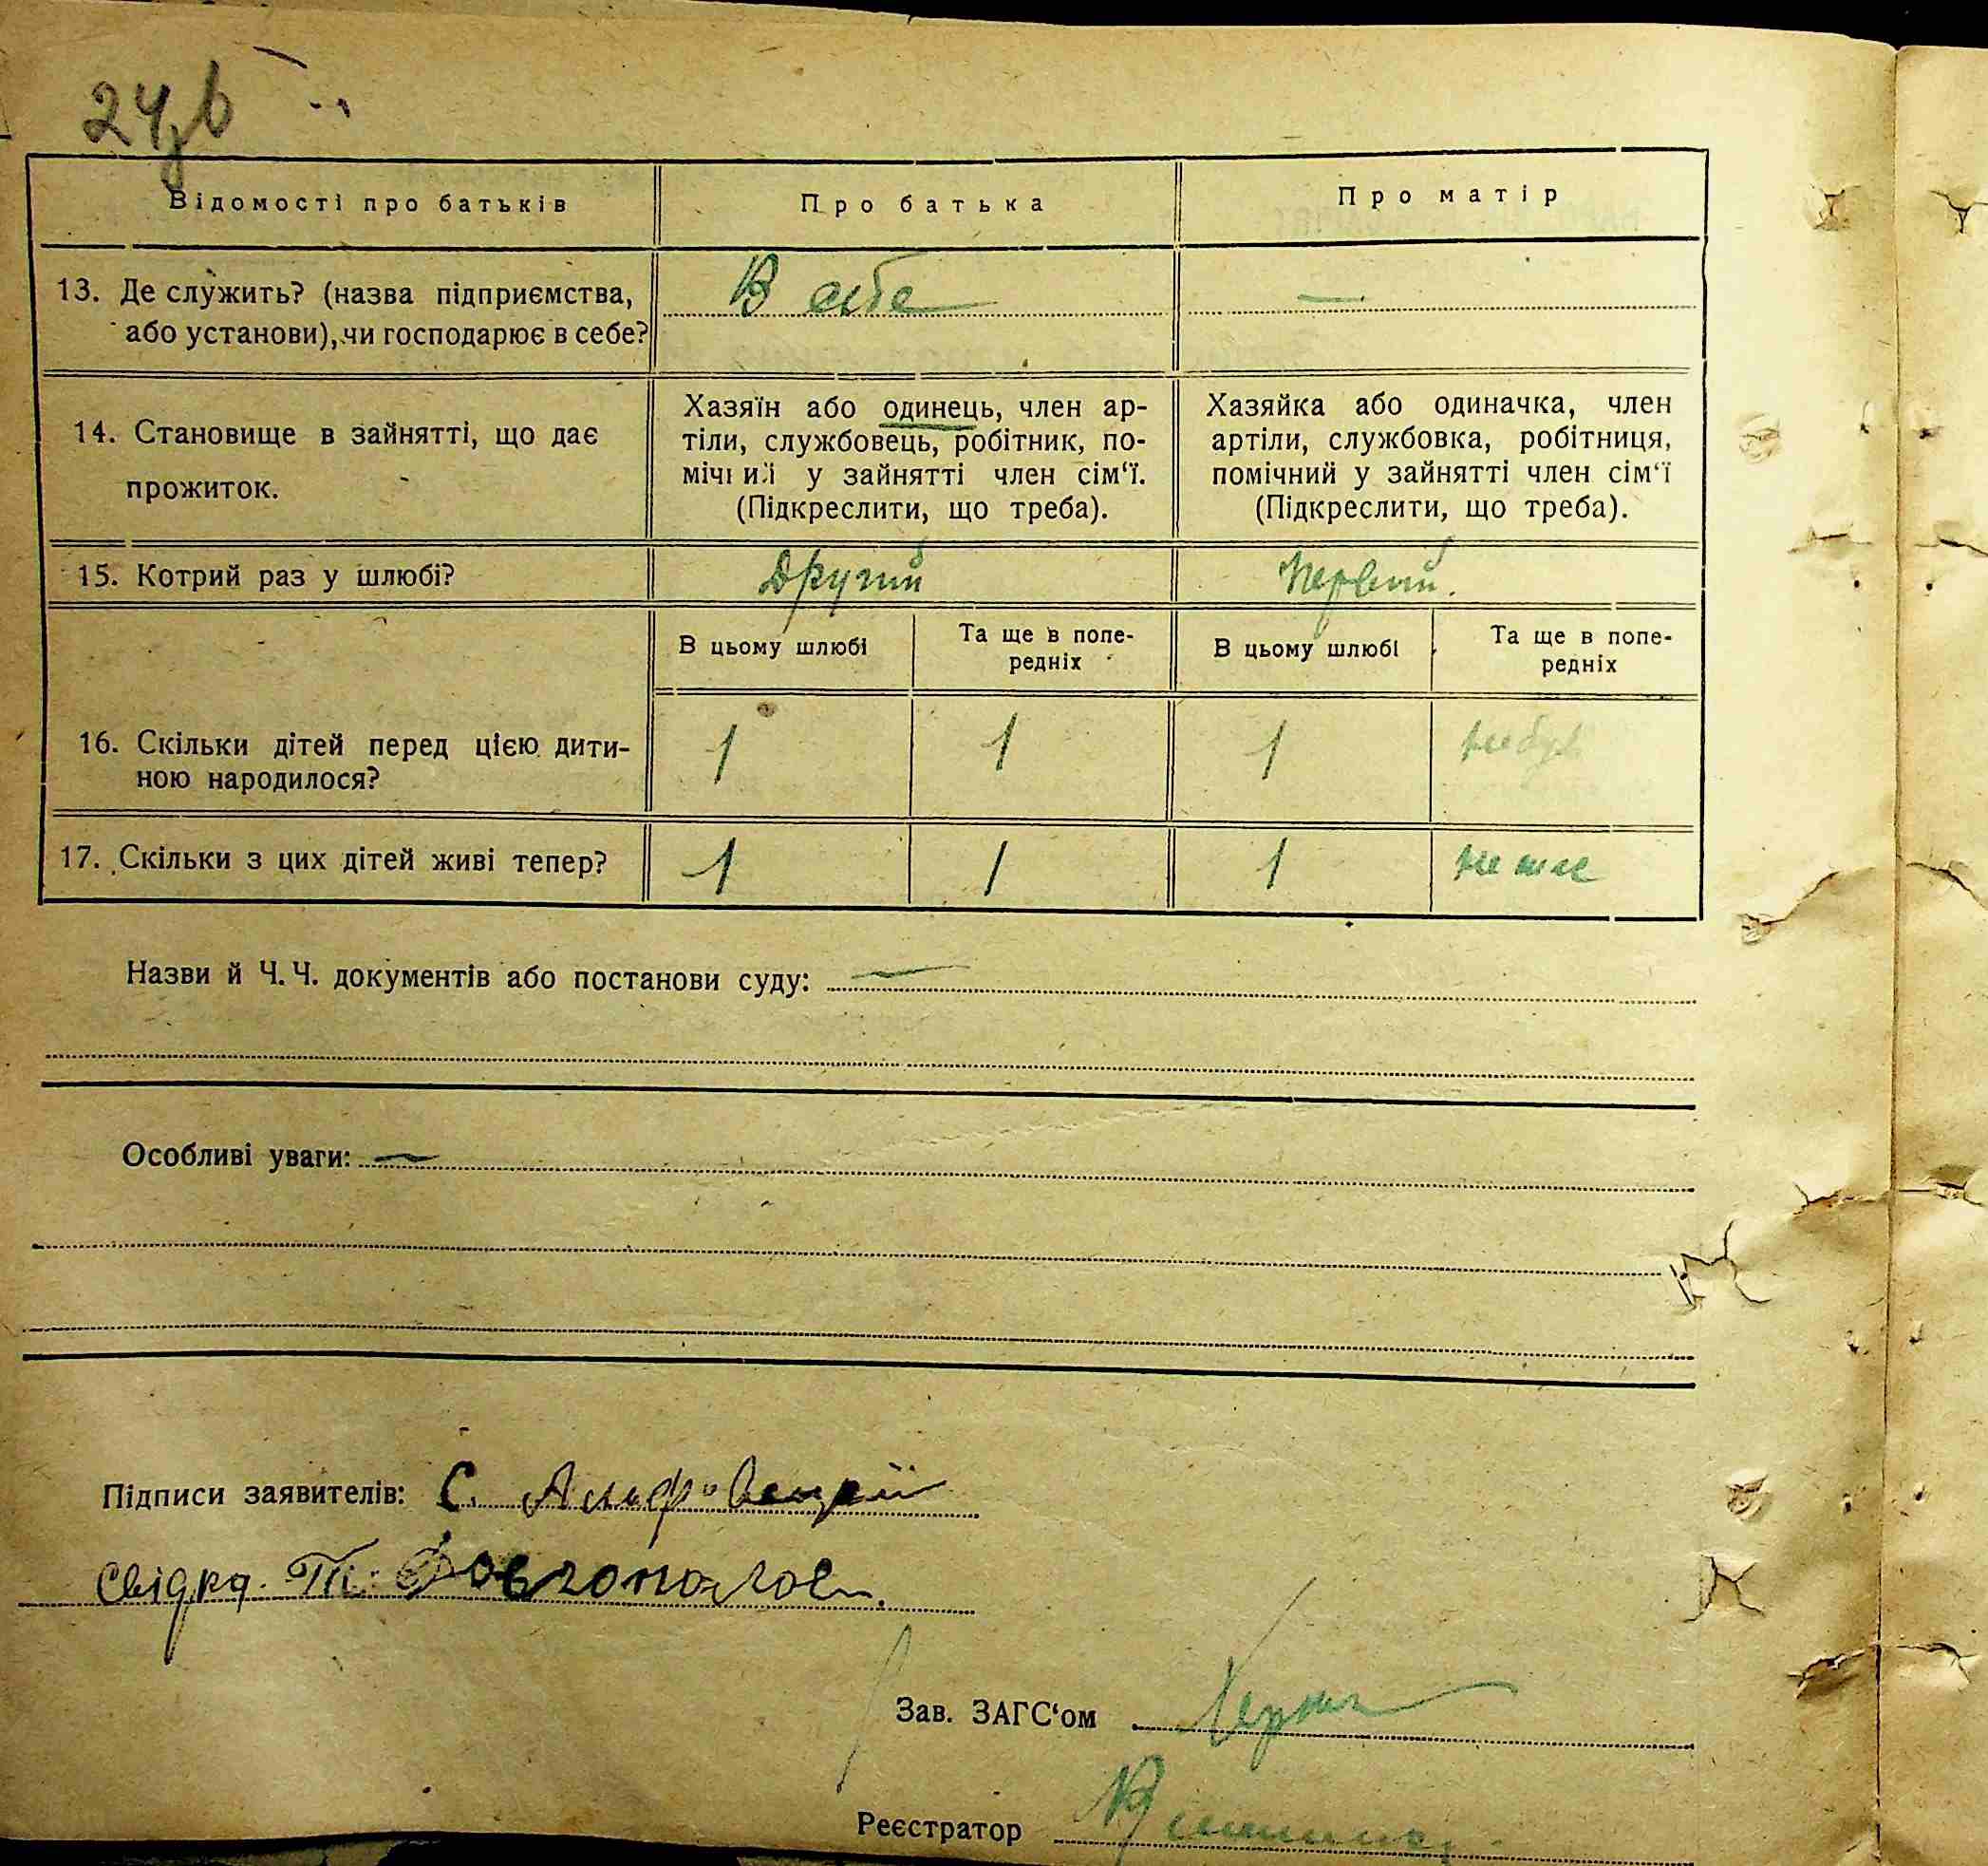 24зв
Відомості про батьків
Про батька
Про матір
13. Де служить? (назва підприємства,
або установи), чи господарює в себе?
В себе
—
14. Становище в зайнятті, що дає
прожиток.
Хазяїн або одинець, член ар-
тіли, службовець, робітник, по-
мічний у зайнятті член сім‘ї.
(Підкреслити, що треба).
Хазяйка або одиначка, член
артіли, службовка, робітниця,
помічний у зайнятті член сім‘ї
(Підкреслити, що треба).
15. Котрий раз у шлюбі?
Другий
Первий.
В цьому шлюбі
Та ще в попе-
редніх
В цьому шлюбі
Та ще в попе-
редніх
16. Скільки дітей перед цією дити-
ною народилося?
1
1
1
не бул
17. Скільки з цих дітей живі тепер?
1
1
1
не має
Назви й Ч. Ч. документів або постанови суду: —
Особливі уваги: —
Підписи заявителів: С.
Свідка. Довгополов
Зав. ЗАГС‘ом
Реєстратор